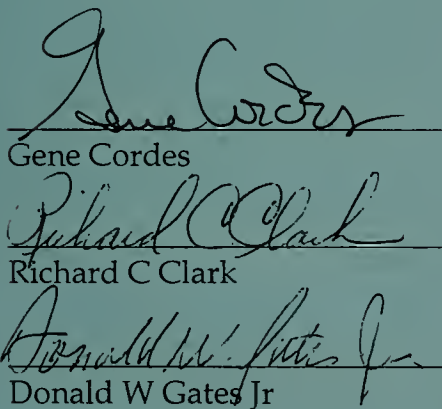 Gene Cordes
Gene Cordes
Richard C Clark
Richard C Clark
Donald W. Gates Jr
Donald W Gates Jr